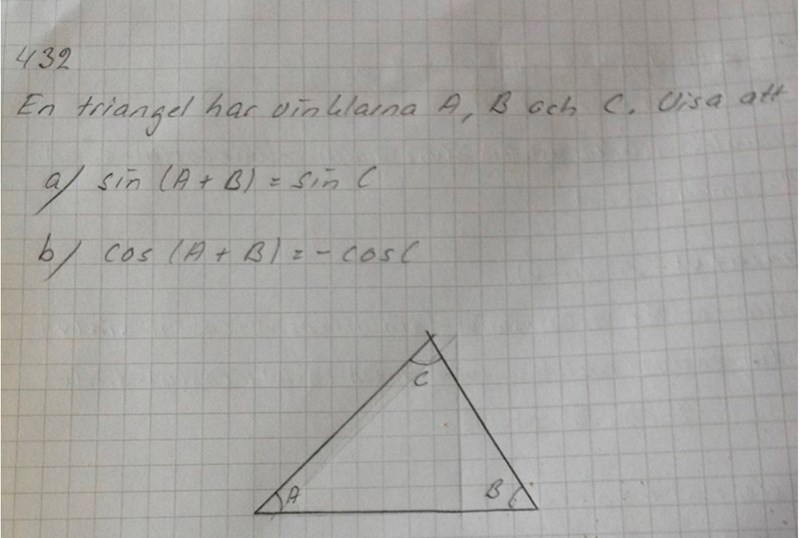 432
En triangel har vinklarna A, B och C. Visa att
a) sin (A + B) = sin C
b) cos (A + B) = - cos C
C
A B